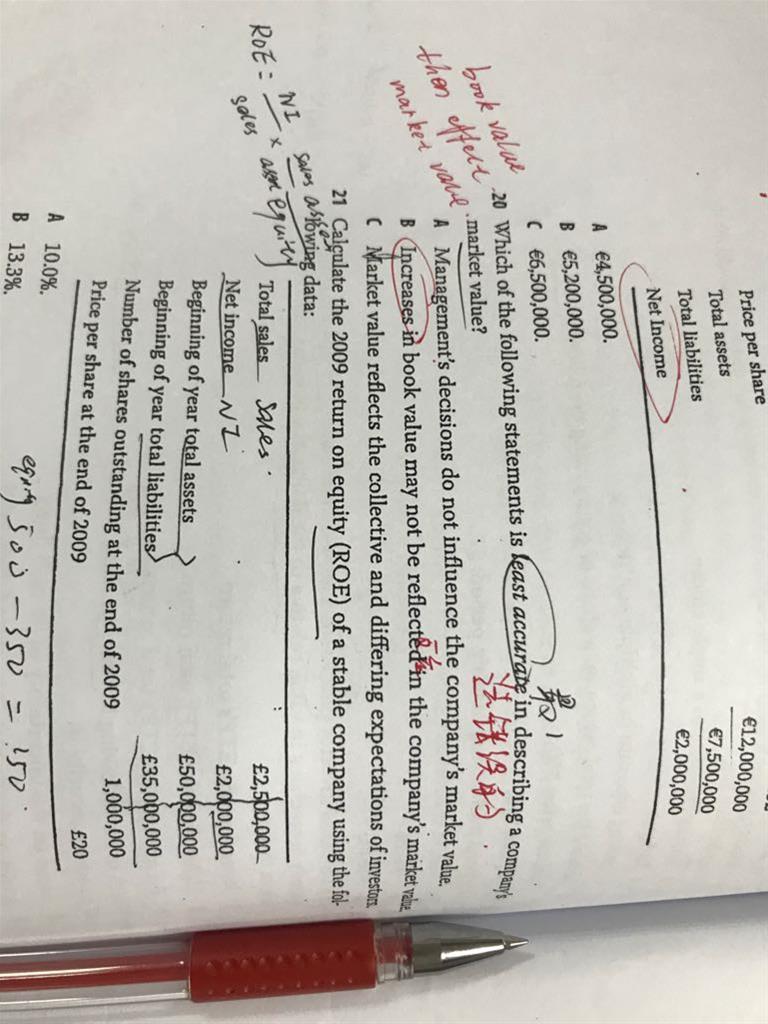 Price per share
Total assets €12,000,000
Total liabilities €7,500,000
Net Income €2,000,000
A €4,500,000.
B €5,200,000.
C €6,500,000.
book value
then effect
market value.
20 Which of the following statements is least accurate in describing a company's
market value?
A Management's decisions do not influence the company's market value.
B Increases in book value may not be reflected in the company's market value.
C Market value reflects the collective and differing expectations of investors.
21 Calculate the 2009 return on equity (ROE) of a stable company using the fol-
lowing data:
ROE = NI / sales × sales / asset equity
Total sales sales. £2,500,000
Net income NI £2,000,000
Beginning of year total assets £50,000,000
Beginning of year total liabilities £35,000,000
Number of shares outstanding at the end of 2009 1,000,000
Price per share at the end of 2009 £20
A 10.0%.
B 13.3%.
equity 500 - 350 = 150.